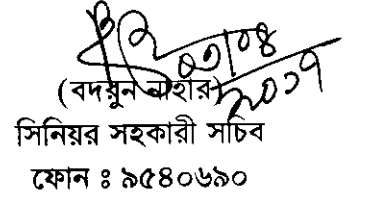 ৩০/০৪/২০১৭
(বদরুন নাহার)
সিনিয়র সহকারী সচিব
ফোন ঃ ৯৫৪০৬৯০